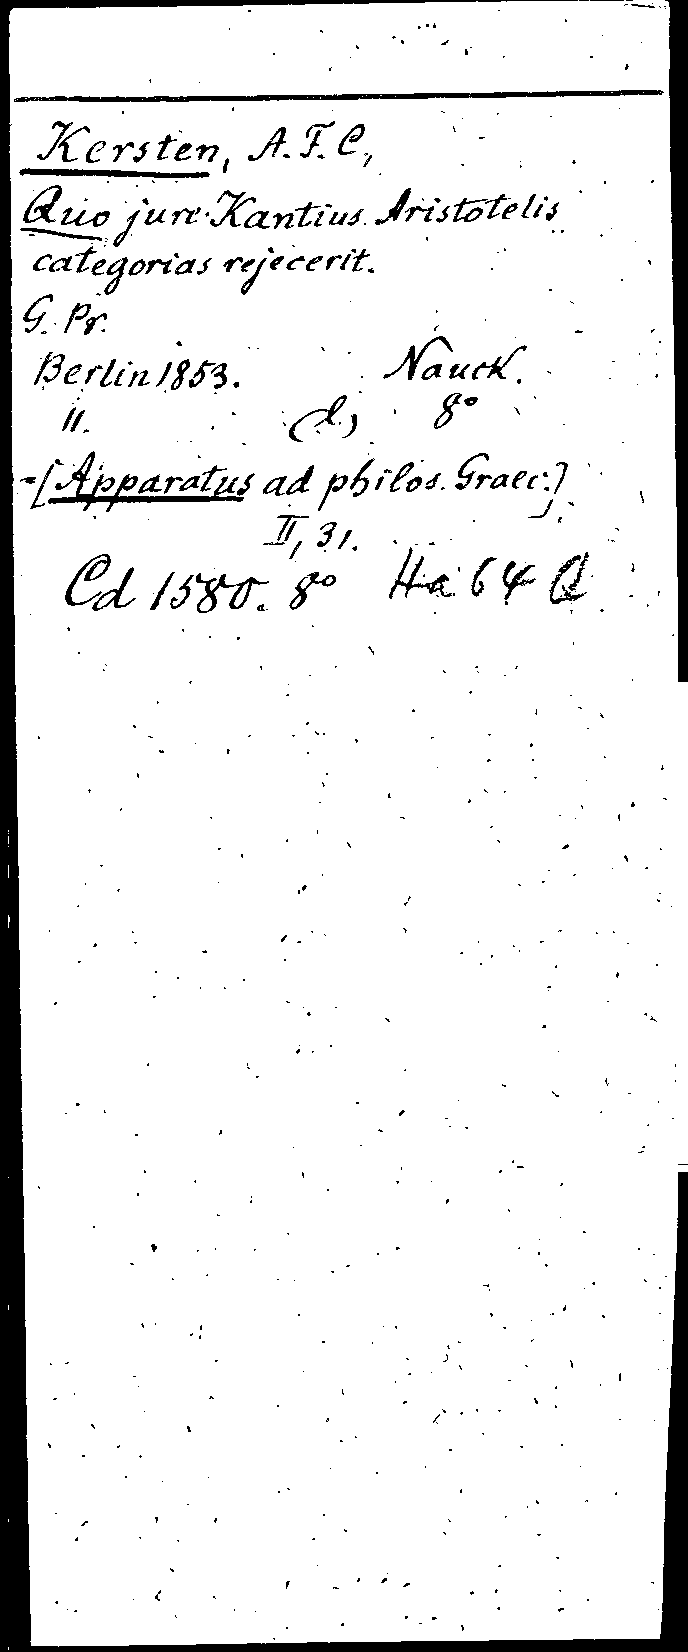 Kersten, A. F. C,
Quo jure Kantius Aristotelis
categorias rejecerit.
G. Pr.
Berlin 1853. Nauck.
11. (d.) 8°
-[Apparatus ad philos. Graec.]
II, 31.
Cd 1580. 8° Ha 64 Q